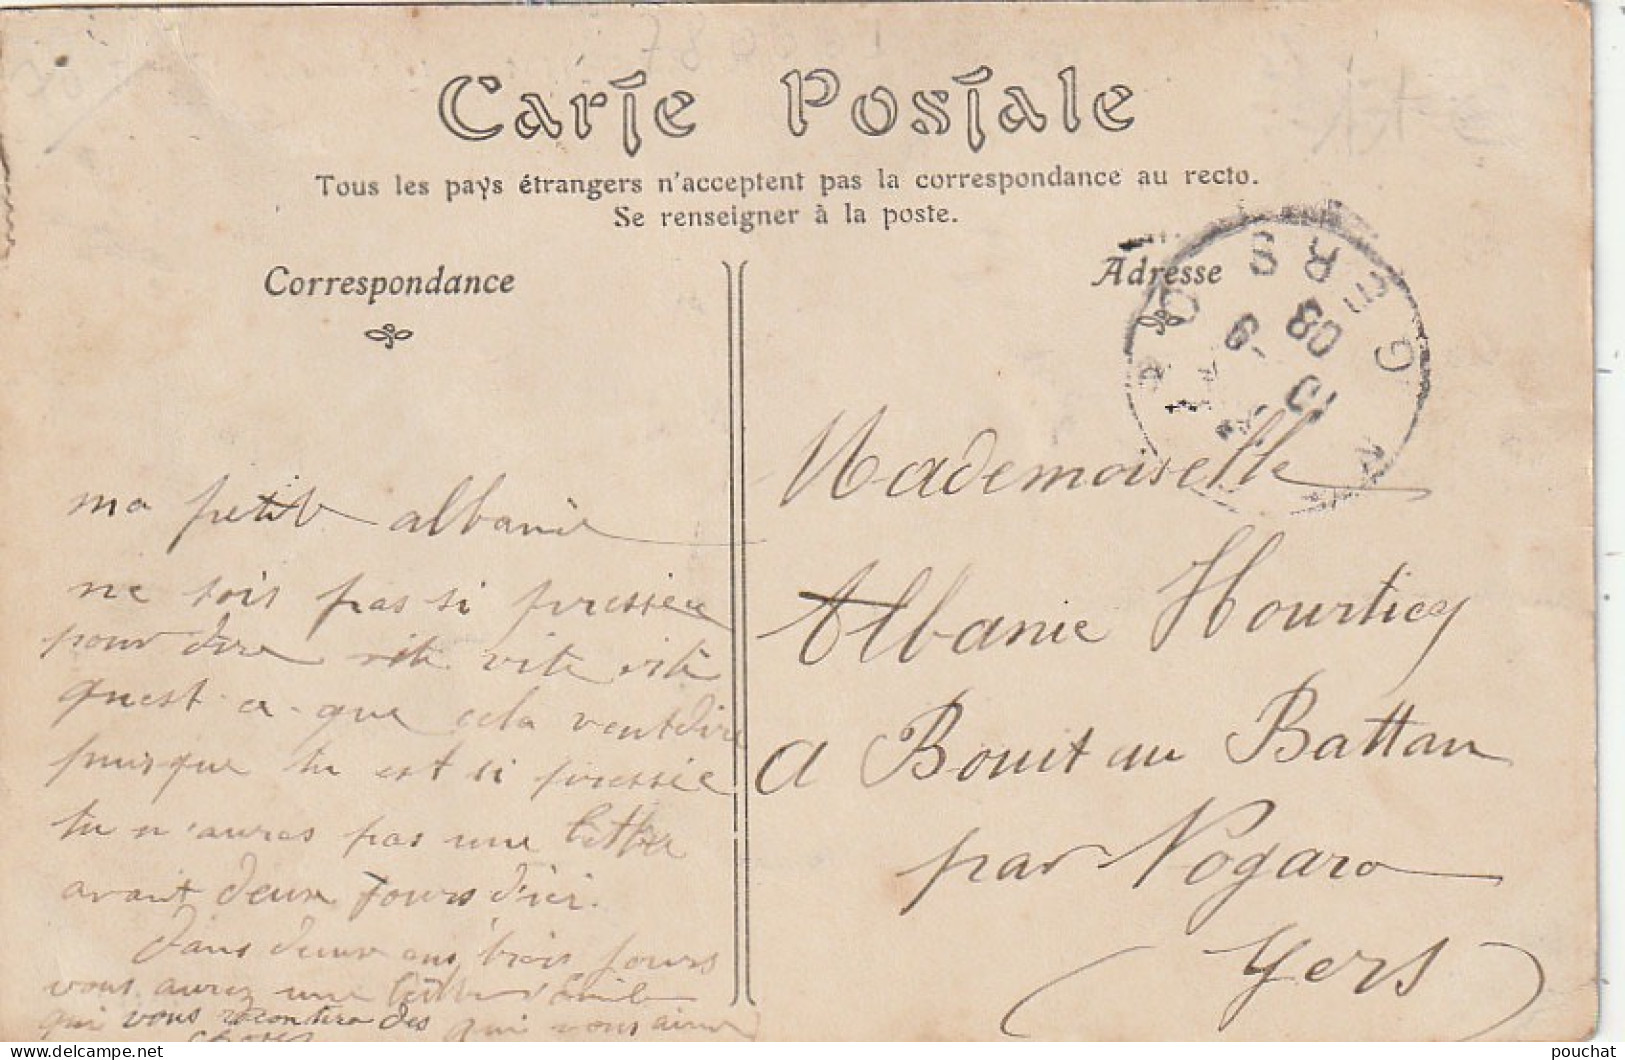 Carte Postale
Tous les pays étrangers n'acceptent pas la correspondance au recto.
Se renseigner à la poste.
Correspondance
Adresse
GERS
10 -9
08
ma petite albanie
ne sois pas si pressée
pour dire vite vite vite
quest-ce-que cela veut dire
puisque tu est si pressée
tu n'auras pas une lettre
avant deux jours d'ici.
dans deux ou trois jours
vous aurez une lettre d'Emile
qui vous racontera des
choses
qui vous
Mademoiselle
Albanie Hourticq
A Bouit au Battau
par Nogaro
Gers
pouchat